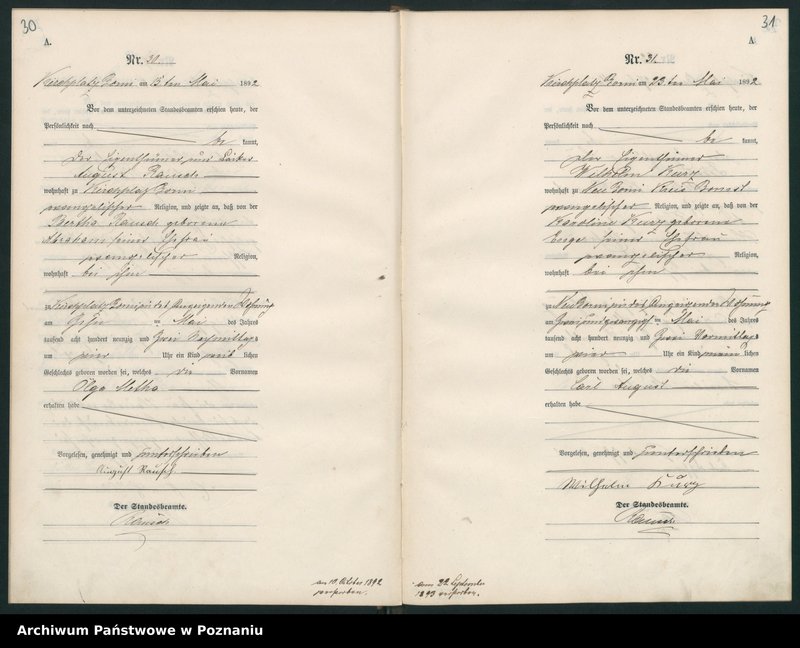 30
A.
Nr. 30.
Kirchplatz Borui am 13ten Mai 1892
Vor dem unterzeichneten Standesbeamten erschien heute, der
Persönlichkeit nach
be kannt,
der Eigenthümer und
August Rausch
wohnhaft zu Kirchplatz Borui
evangelischer Religion, und zeigte an, daß von der
Bertha Rausch geborene
Abraham seiner Ehefrau
evangelischer Religion,
wohnhaft bei ihm
zu Kirchplatz Borui in des Anzeigenden Wohnung
am ten Mai des Jahres
tausend acht hundert neunzig und zwei Nachmittags
um Uhr ein Kind weib lichen
Geschlechts geboren worden sei, welches die Vornamen
Olga Metha
erhalten habe
Vorgelesen, genehmigt und unterschrieben
August Rausch
Der Standesbeamte.
am 10. Oktober 1892
verstorben.
31
A.
Nr. 31.
Kirchplatz Borui am 23ten Mai 1892
Vor dem unterzeichneten Standesbeamten erschien heute, der
Persönlichkeit nach
be kannt,
der Eigenthümer
Wilhelm Kurz
wohnhaft zu Neu Borui Kreis Bomst
evangelischer Religion, und zeigte an, daß von der
Karoline Kurz geborene
seiner Ehefrau
evangelischer Religion,
wohnhaft bei ihm
zu Neu Borui in des Anzeigenden Wohnung
am Mai des Jahres
tausend acht hundert neunzig und zwei Vormittags
um Uhr ein Kind männ lichen
Geschlechts geboren worden sei, welches die Vornamen
Carl August
erhalten habe
Vorgelesen, genehmigt und unterschrieben
Wilhelm Kurz
Der Standesbeamte.
am 22 September
1893 verstorben.
Archiwum Państwowe w Poznaniu